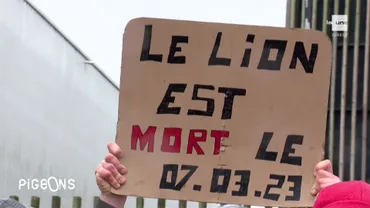 LE LiON
EST
MORT LE
07.03.23
PiGEONS